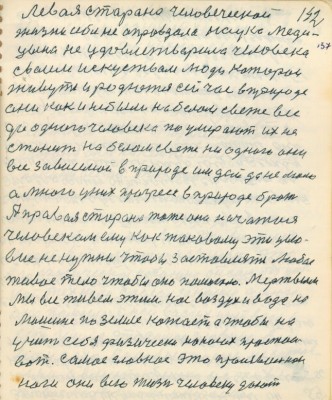 132
Левая старана человеческой
жизни себя не оправдала наука Меди-
137
цына не удовлетварила человека
своим искуством люди которои
живутъ и родются сей час в природе
они как и небыли на белом свете все
до одного человека поумирают их не
станить на белом свете ни одного они
все зависимой в природе им
а много у них прогресс в природе
А правая старана тоже она начатая
человеком ему как таковому это усло-
вие не нужны чтобы заставлять любое
живое тело чтобы оно
мы все живем этими нас воздух и вода не
машине по земле катает а чтобы на
учить себя физически на ногах
вот. самое главное это
ноги они всю жизнь человеку дают